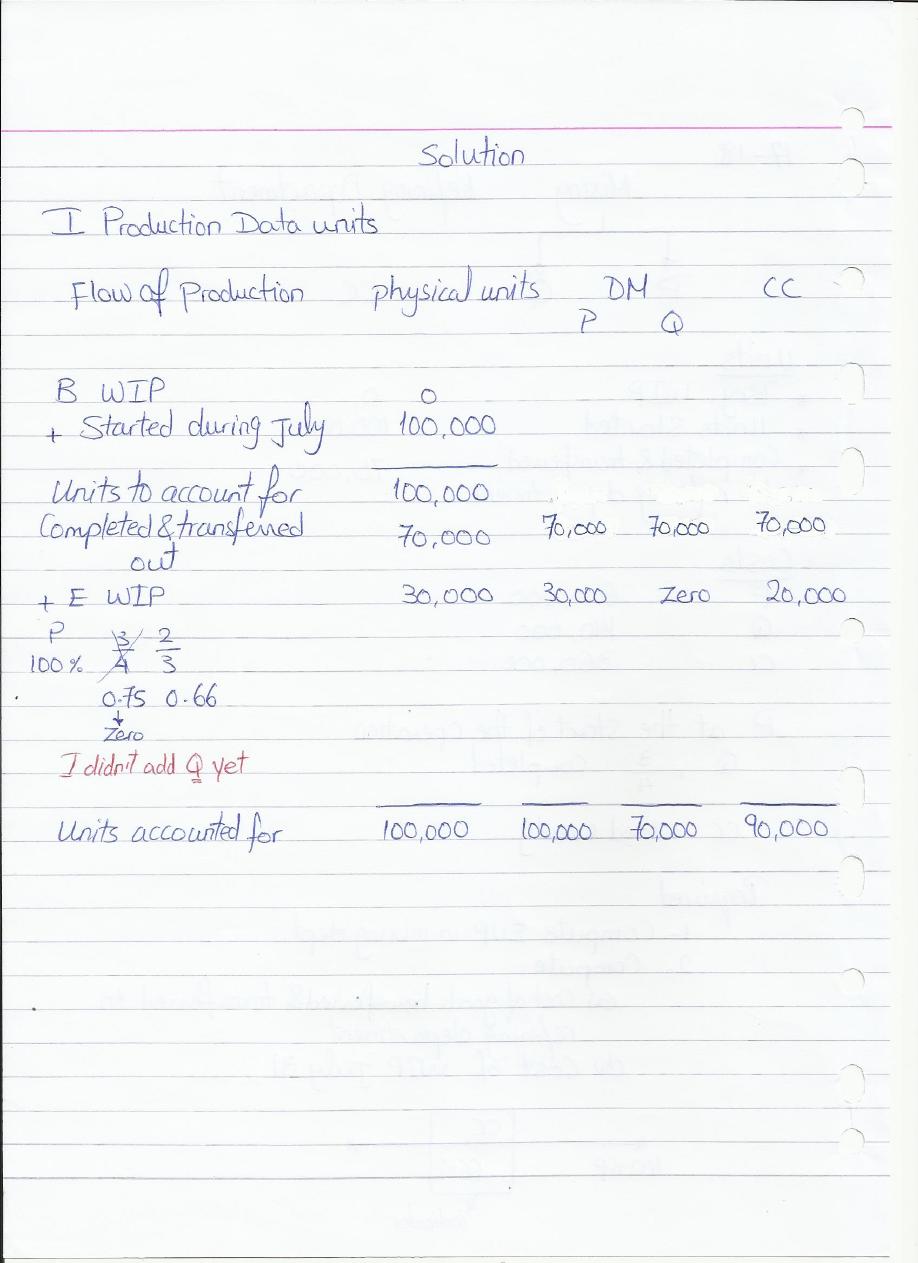 Solution
I Production Data units
Flow of Production physical units DM CC
P Q
B WIP 0
+ Started during July 100,000
Units to account for 100,000
Completed & transferred 70,000 70,000 70,000 70,000
out
+ E WIP 30,000 30,000 Zero 20,000
P 3 2
100% 4 3
0.75 0.66
↓
Zero
I didn't add Q yet
Units accounted for 100,000 100,000 70,000 90,000